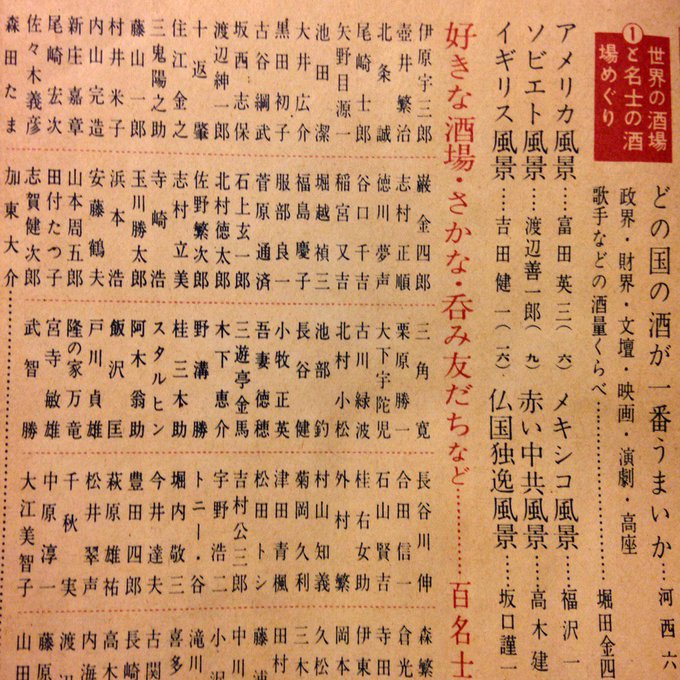 世界の酒場
①と名士の酒
場めぐり
どの国の酒が一番うまいか……河西六
政界・財界・文壇・映画・演劇・高座
歌手などの酒量くらべ……堀田金四
アメリカ風景……富田英三(六) メキシコ風景……福沢一
ソビエト風景……渡辺善一郎(九) 赤い中共風景……高木建
イギリス風景……吉田健一(一六) 仏国独逸風景……坂口謹一
好きな酒場・さかな・呑み友だちなど……百名士
伊原宇三郎 巌金四郎 三角寛 長谷川伸 森繁
壺井繁治 志村正順 栗原勝一 合田信一 倉光
北条誠 徳川夢声 大下宇陀児 石山賢吉 寺田
尾崎士郎 谷口千吉 古川緑波 桂右女助 伊東
矢野目源一 稲宮又吉 北村小松 外村繁 岡本
池田潔 堀越禎三 池部釣 村山知義 久松
大井広介 福島慶子 長谷健 菊岡久利 三木
黒田初子 服部良一 小牧正英 津田青楓 田村
古谷綱武 菅原通済 吾妻徳穂 松田トシ 藤浦
坂西志保 石上玄一郎 三遊亭金馬 吉村公三郎 中川
渡辺紳一郎 北村徳太郎 木下恵介 宇野浩二 小沢
十返肇 佐野繁次郎 野溝勝 トニー・谷 滝川
住江金之 志村立美 桂三木助 堀内敬三 喜多
三鬼陽之助 寺崎浩 スタルヒン 今井達夫 古関
藤山一郎 玉川勝太郎 阿木翁助 豊田四郎 長崎
村井米子 浜本浩 飯沢匡 萩原雄祐 高木
内山完造 安藤鶴夫 戸川貞雄 松井翠声 内海
新庄嘉章 山本周五郎 隆の家万竜 千秋実 渡
尾崎宏次 田付たつ子 宮寺敏雄 中原淳一 藤原
佐々木義彦 志賀健次郎 武智勝 大江美智子 山田
森田たま 加東大介……